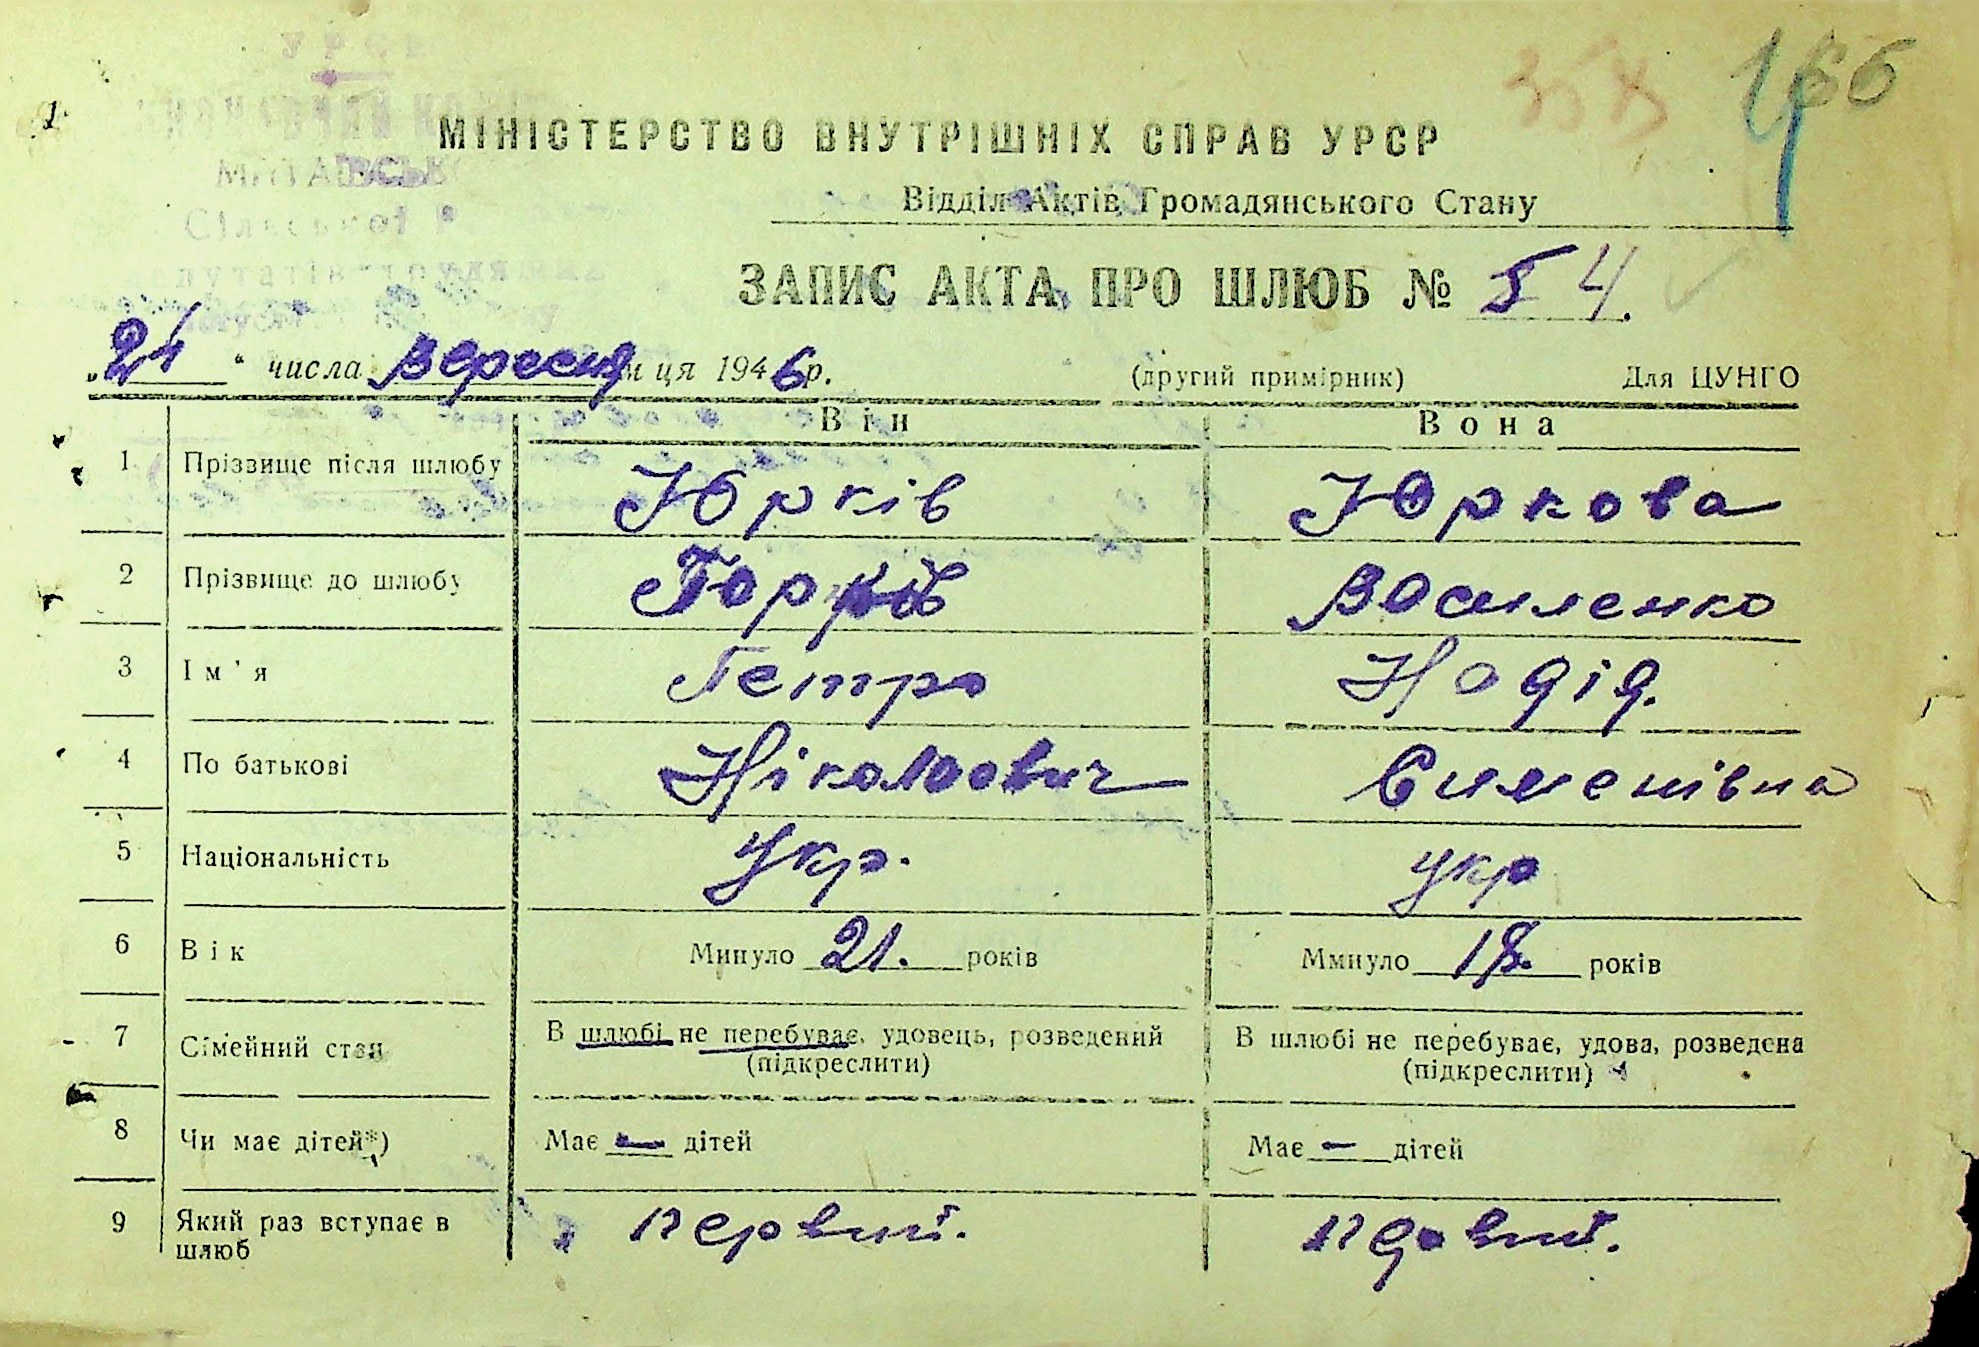 УРСР
1
358
166
МІНІСТЕРСТВО ВНУТРІШНІХ СПРАВ УРСР
Сільської
Відділ Актів Громадянського Стану
депутатів трудящих
ЗАПИС АКТА ПРО ШЛЮБ № 54.
„24" числа Вересня м ця 1946р. (другий примірник) Для ЦУНГО
Він Вона
1 Прізвище після шлюбу Юрків Юркова
2 Прізвище до шлюбу Юрків Василенко
3 Ім'я Петро Надія.
4 По батькові Ніколаевич Сименівна
5 Національність Укр. укр
6 Вік Минуло 21. років Ммнуло 18. років
7 Сімейний стан В шлюбі не перебуває, удовець, розведений В шлюбі не перебуває, удова, розведена
(підкреслити) (підкреслити)
8 Чи має дітей*) Має — дітей Має — дітей
9 Який раз вступає в шлюб первий. первий.